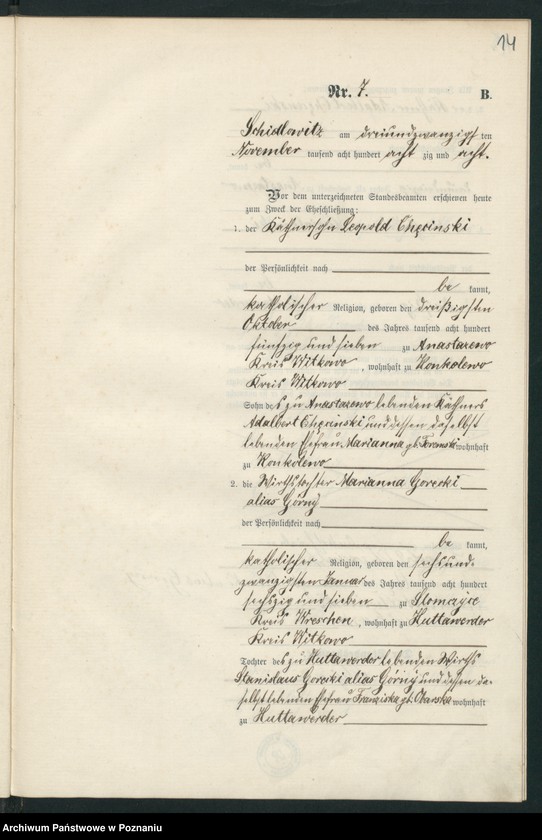 14
Nr. 7.
B.
Schidlowitz am dreiundzwanzigsten
November tausend acht hundert acht zig und acht.
Vor dem unterzeichneten Standesbeamten erschienen heute
zum Zweck der Eheschließung:
1. der Käthnersohn Leopold Chęcinski
der Persönlichkeit nach
be kannt,
katholischer Religion, geboren den dreißigsten
Oktober des Jahres tausend acht hundert
fünfzig und sieben zu Anastazewo
Kreis Witkowo, wohnhaft zu Konkolewo
Kreis Witkowo
Sohn des zu Anastazewo lebenden Käthners
Adalbert Chęcinski und dessen daselbst
lebenden Ehefrau Marianna gb. wohnhaft
zu Konkolewo
2. die Wirthstochter Marianna Gorecki
alias Górny
der Persönlichkeit nach
be kannt,
katholischer Religion, geboren den sechsund-
zwanzigsten Januar des Jahres tausend acht hundert
sechszig und sieben zu
Kreis Wreschen, wohnhaft zu Huttawerder
Kreis Witkowo
Tochter des zu Huttawerder lebenden Wirths
Stanislaus Gorecki alias Górny und dessen da-
selbst lebenden Ehefrau Franziska gb. wohnhaft
zu Huttawerder
Archiwum Państwowe w Poznaniu